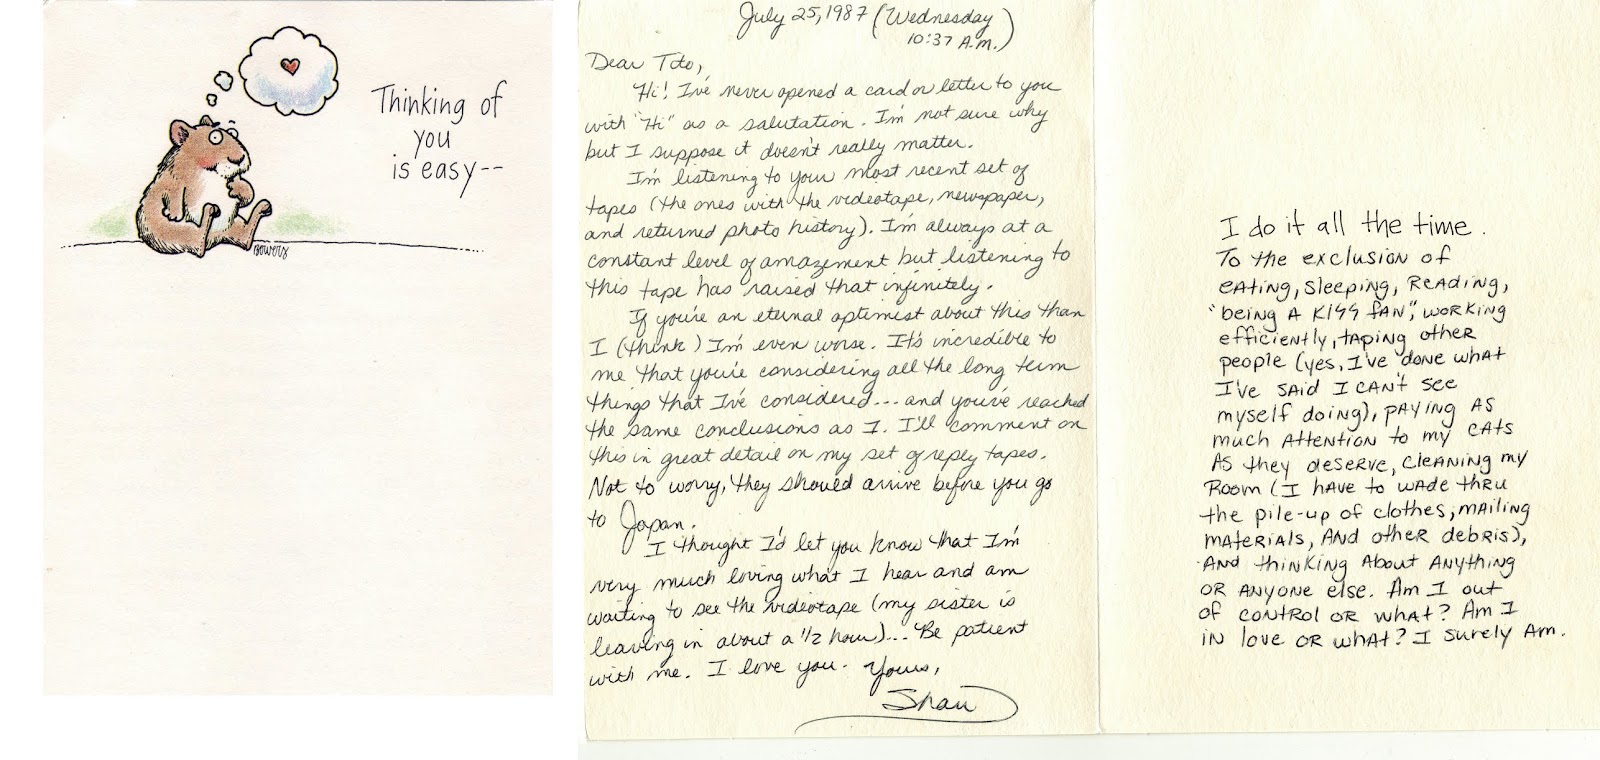 Thinking of
you
is easy--
Bowers
July 25, 1987 (Wednesday
10:37 A.M.)
Dear Toto,
Hi! I've never opened a card or letter to you
with "Hi" as a salutation. I'm not sure why
but I suppose it doesn't really matter.
I'm listening to your most recent set of
tapes (the ones with the videotape, newspaper,
and returned photo history). I'm always at a
constant level of amazement but listening to
this tape has raised that infinitely.
If you're an eternal optimist about this than
I (think) I'm even worse. It's incredible to
me that you're considering all the long term
things that I've considered... and you've reached
the same conclusions as I. I'll comment on
this in great detail on my set of reply tapes.
Not to worry, they should arrive before you go
to Japan.
I thought I'd let you know that I'm
very much loving what I hear and am
waiting to see the videotape (my sister is
leaving in about a 1/2 hour)... Be patient
with me. I love you. Yours,
Shari
I do it all the time.
To the exclusion of
eating, sleeping, reading,
"being a KISS fan", working
efficiently, taping other
people (yes, I've done what
I've said I can't see
myself doing), paying as
much attention to my cats
as they deserve, cleaning my
room (I have to wade thru
the pile-up of clothes, mailing
materials, and other debris),
and thinking about anything
or anyone else. Am I out
of control or what? Am I
in love or what? I surely am.